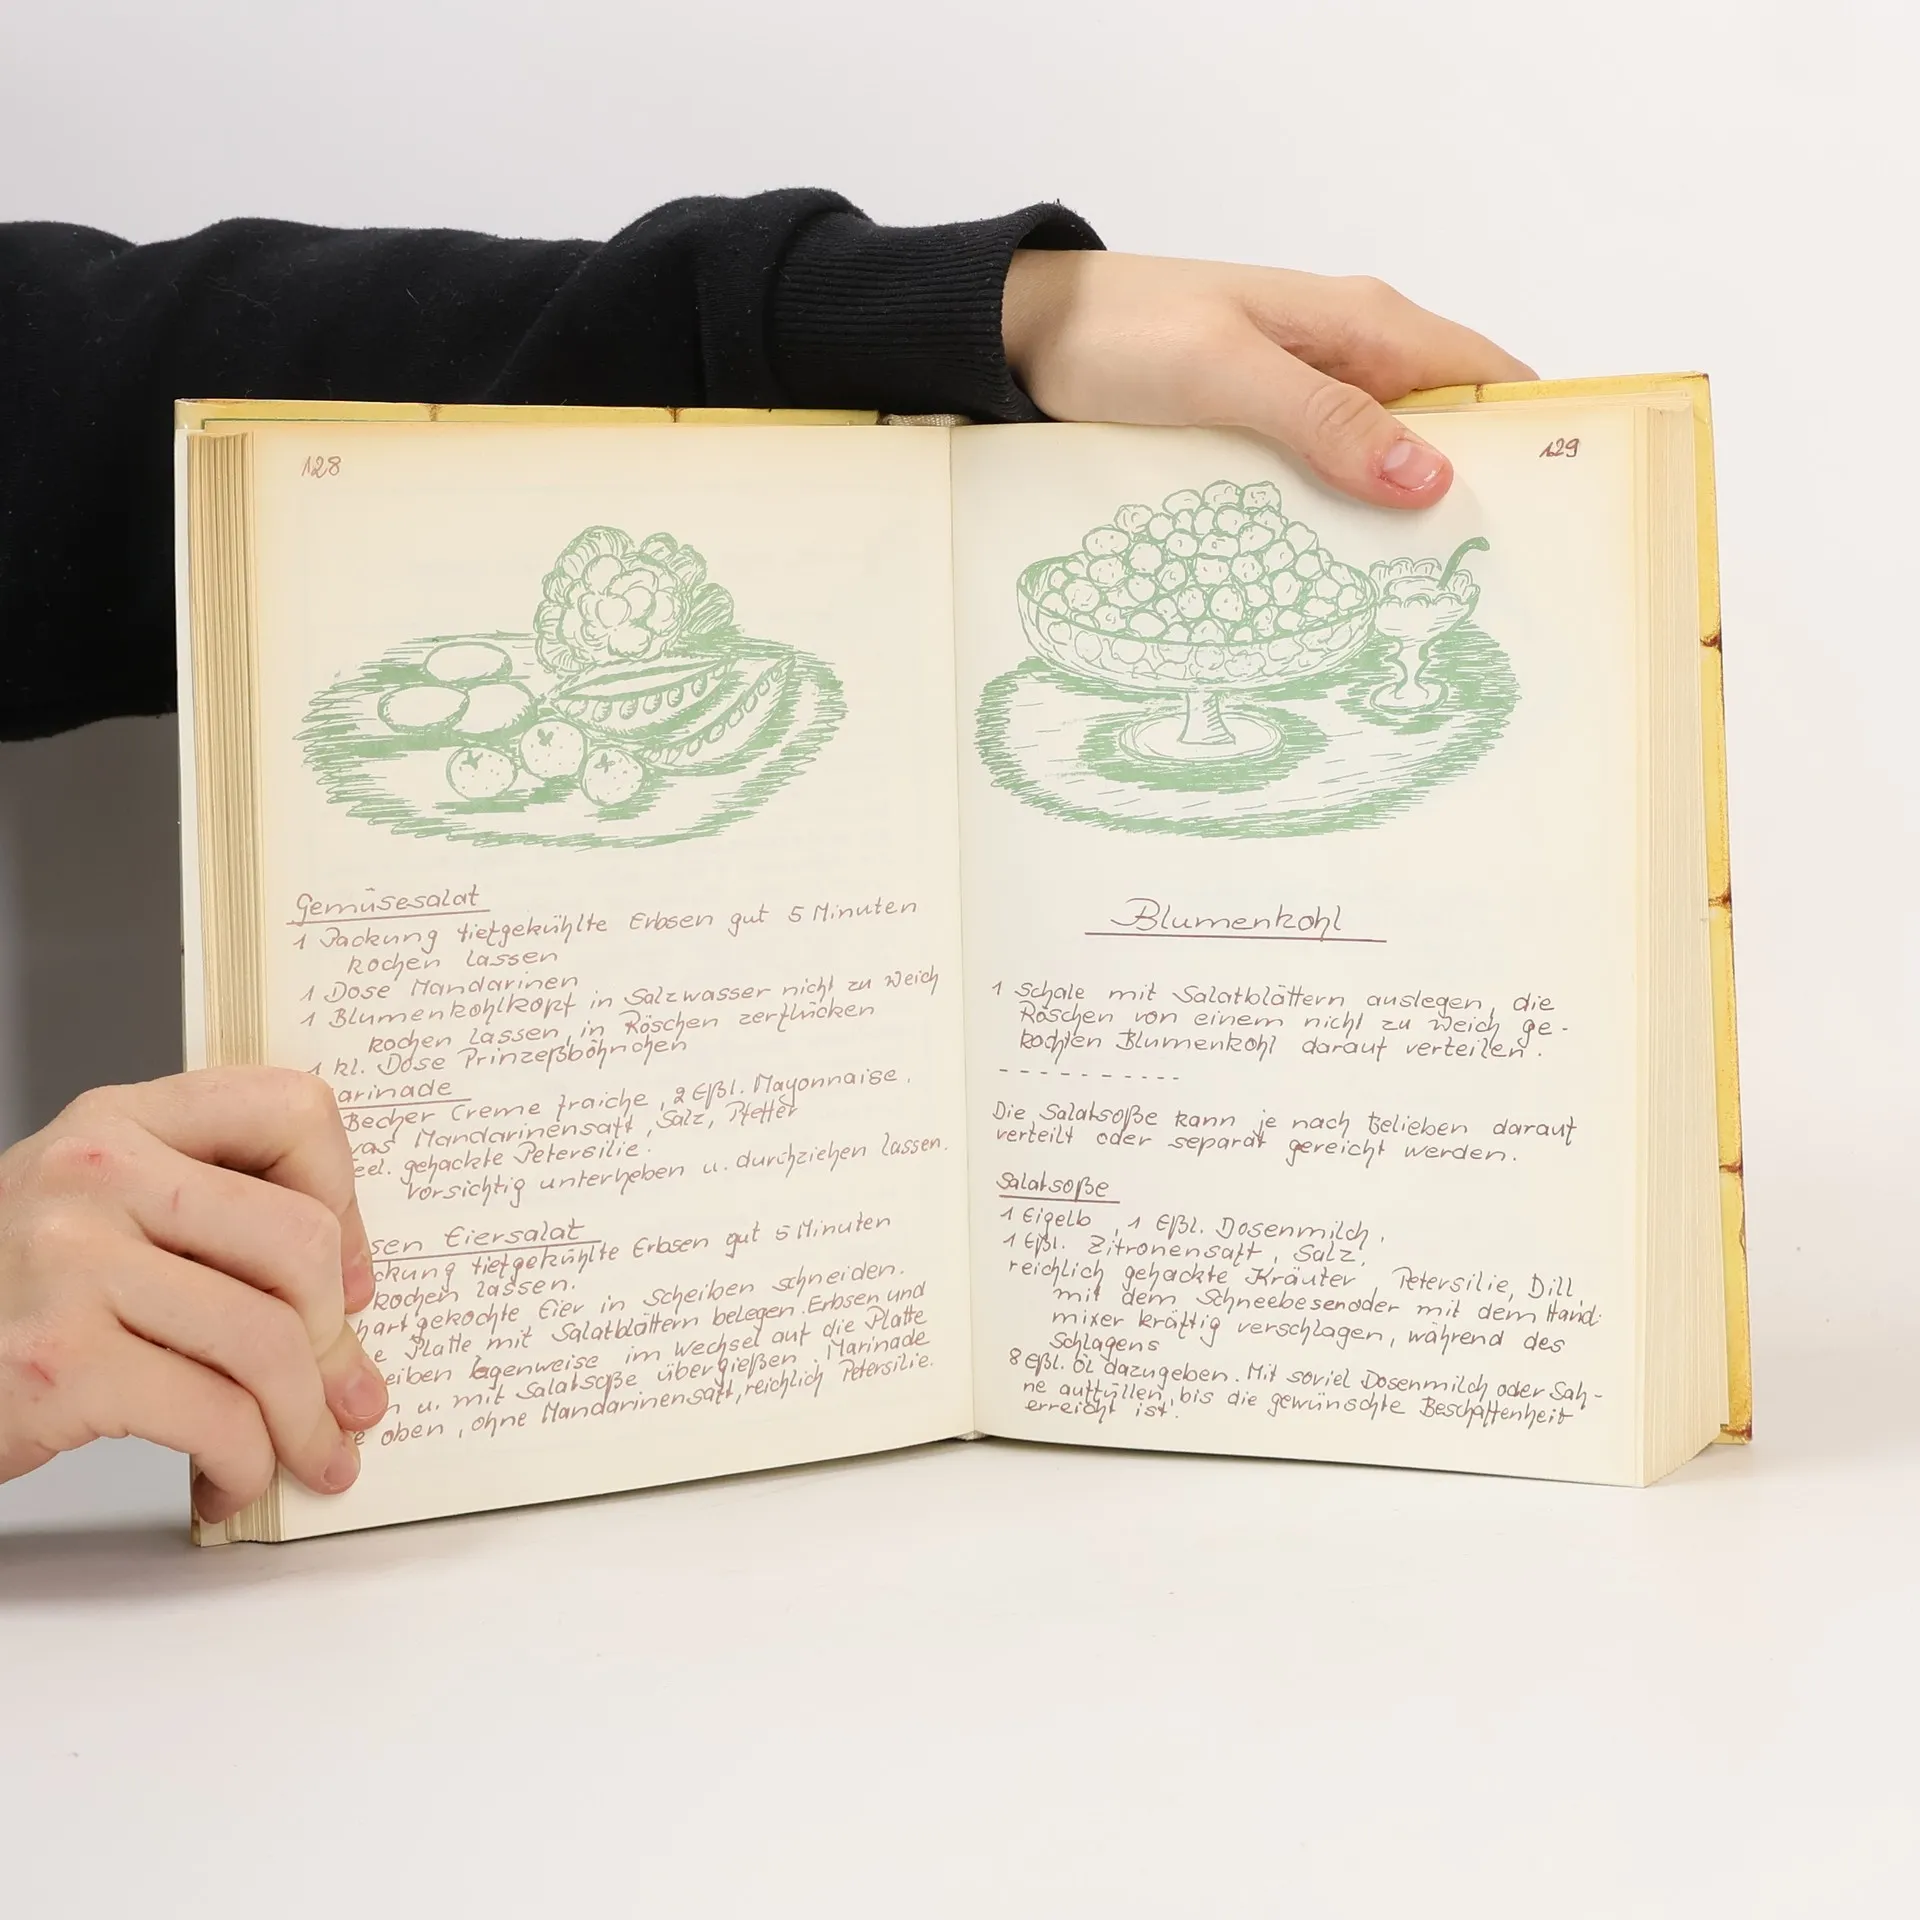 128
Gemüsesalat
1 Packung tiefgekühlte Erbsen gut 5 Minuten
kochen lassen
1 Dose Mandarinen
1 Blumenkohlkopf in Salzwasser nicht zu weich
kochen lassen, in Röschen zerpflücken
1 kl. Dose Prinzeßböhnchen
arinade
Becher Creme fraiche, 2 Eßl. Mayonnaise,
vas Mandarinensaft, Salz, Pfeffer
eel. gehackte Petersilie.
Vorsichtig unterheben u. durchziehen lassen.
sen Eiersalat
ckung tiefgekühlte Erbsen gut 5 Minuten
kochen lassen.
hart gekochte Eier in Scheiben schneiden.
e Platte mit Salatblättern belegen. Erbsen und
eiben lagenweise im Wechsel auf die Platte
n u. mit Salatsoße übergießen. Marinade
e oben, ohne Mandarinensaft, reichlich Petersilie.
129
Blumenkohl
1 Schale mit Salatblättern auslegen, die
Röschen von einem nicht zu weich ge-
kochten Blumenkohl darauf verteilen.
- - - - - - - - - - -
Die Salatsoße kann je nach Belieben darauf
verteilt oder separat gereicht werden.
Salatsoße
1 Eigelb, 1 Eßl. Dosenmilch,
1 Eßl. Zitronensaft, Salz,
reichlich gehackte Kräuter, Petersilie, Dill
mit dem Schneebesen oder mit dem Hand-
mixer kräftig verschlagen, während des
Schlagens
8 Eßl. Öl dazugeben. Mit soviel Dosenmilch oder Sah-
ne auffüllen, bis die gewünschte Beschaffenheit
erreicht ist.